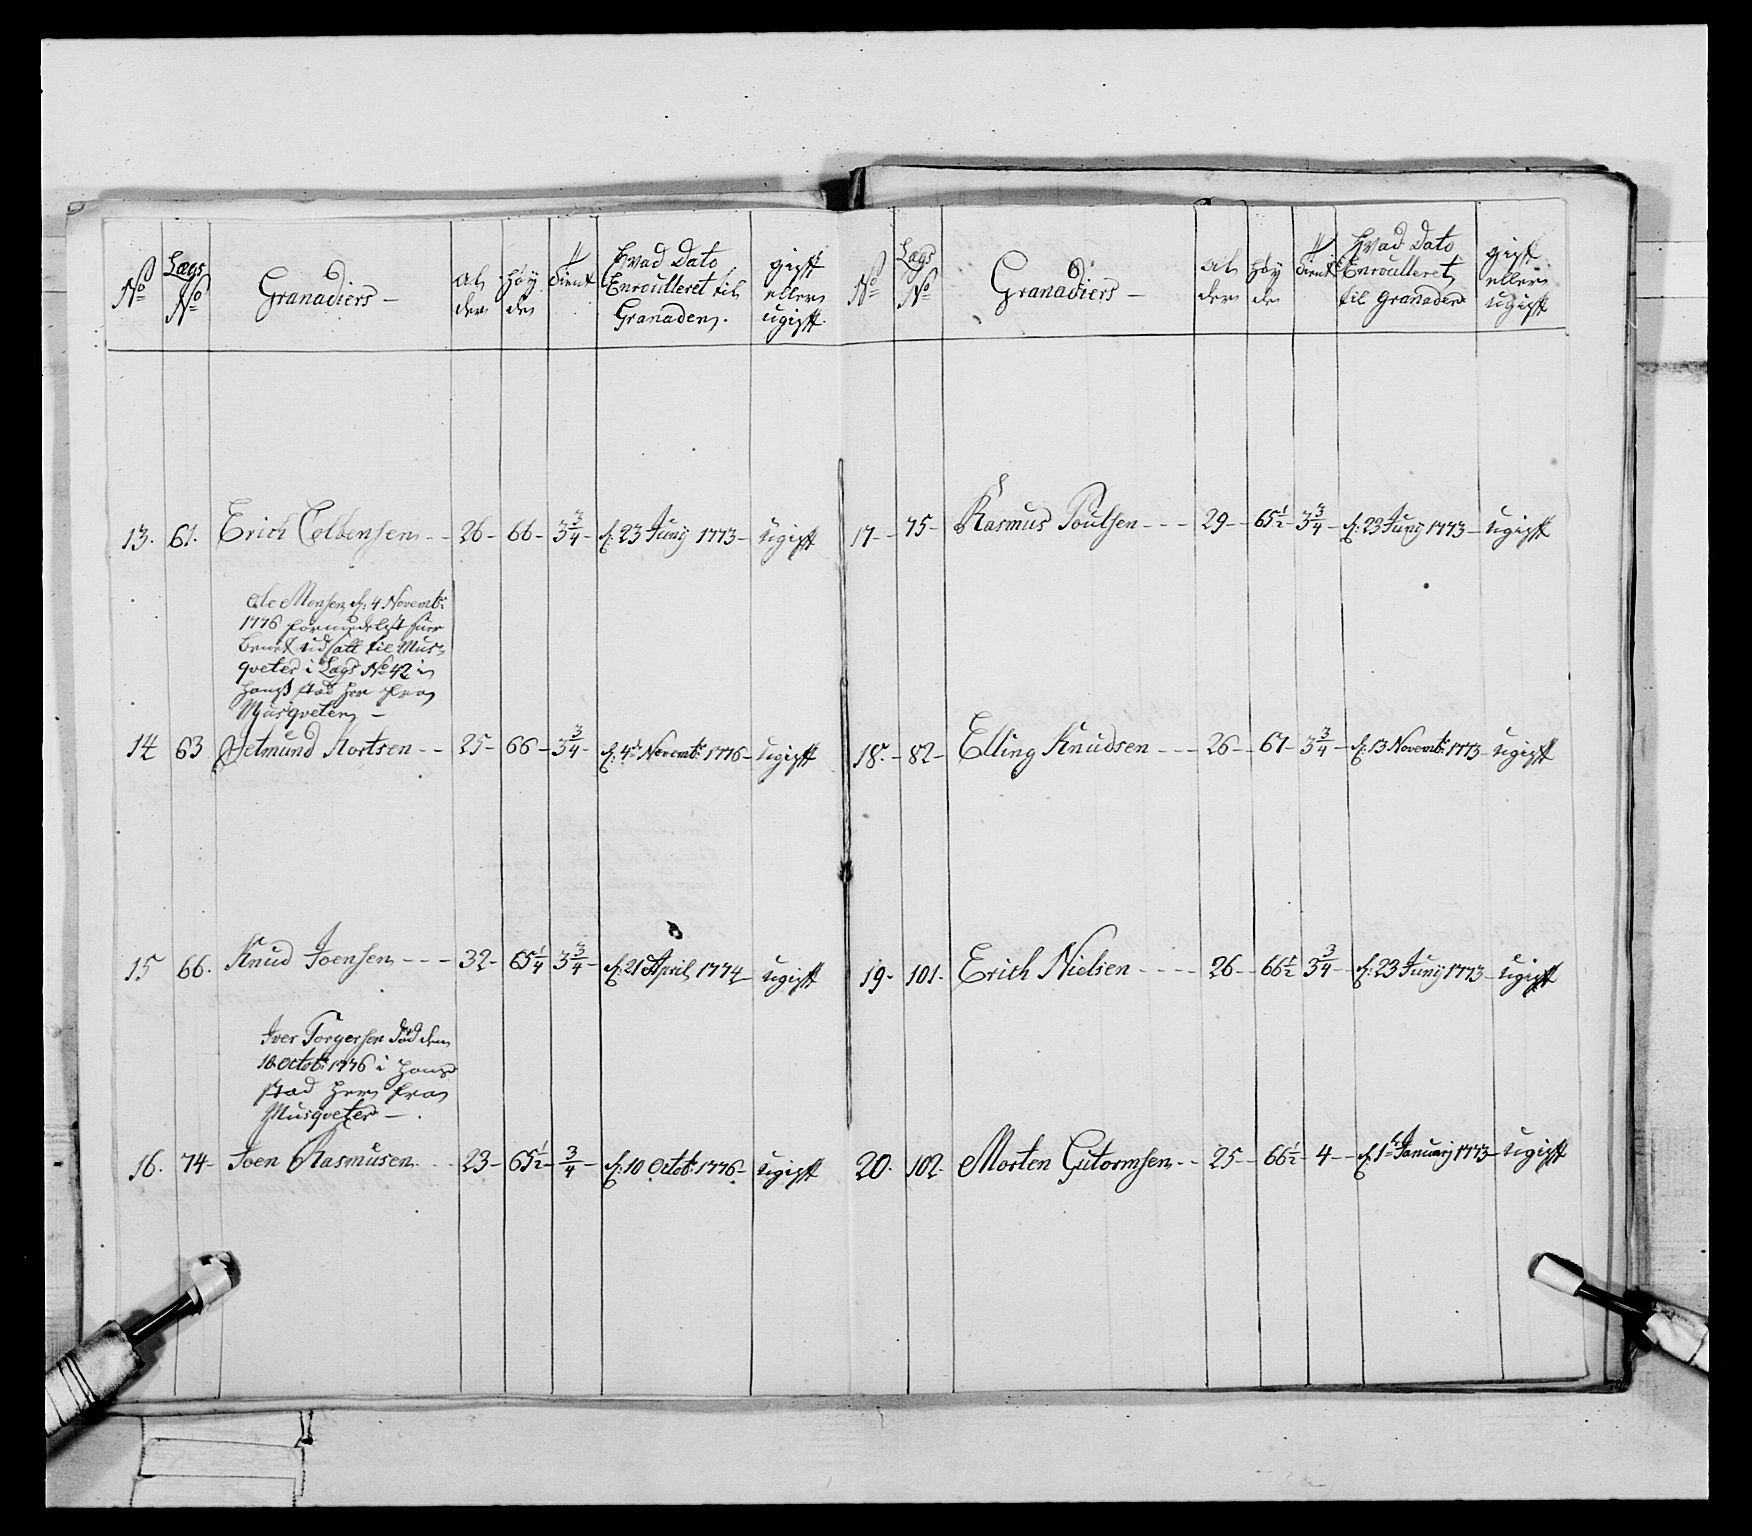 No
Lægs No
Granadiers –
Al der
Høy de
tient
Hvad Dato Enroulleret til Granader.
gift eller ugift
13. 61. Erich Colbensen - - 26 - 66 - 3 3/4 - d: 23 Junij 1773 - ugift
Ole Monsen d: 4 Novembr:
1776 formedelst
Benet udsatt til Mus-
qveter i Lægs No 42 i
Hans stæd her fra
Musqveter –
14 63 Jetmund Kortsen - - 25 - 66 - 3 3/4 - d: 4de Novembr: 1776 - ugift
15 66. Knud Joensen - - - 32 - 65 1/4 3 3/4 - d: 21 April 1774 ugift
Iver Torgersen død den
10 Octobr: 1776 i Hans
stæd her fra
Musqveter – .
16. 74 - Joen Rasmusen - - 23 - 65 1/2 - 3/4 - d: 10 Octobr: 1776 - ugift
No
Lægs No
Granadiers –
Al der
Høy de
tient
Hvad Dato Enroulleret til Granader
gift eller ugift
17 - 75 - Rasmus Poulsen - - - 29 - 65 1/2 - 3 3/4 - d: 23 Junij 1773 - ugift
18. - 82 - Elling Knudsen - - - 26 - 67 - 3 3/4 - d: 13 Novembr: 1773 - ugift
19 - 101. Erich Nielsen - - - - 26 - 66 1/2 - 3 3/4 - d: 23 Junij 1773 - ugift
20. 102. Morten Gutormsen - - 25 - 66 1/2 - 4 - d: 1te Januarj 1773 - ugift